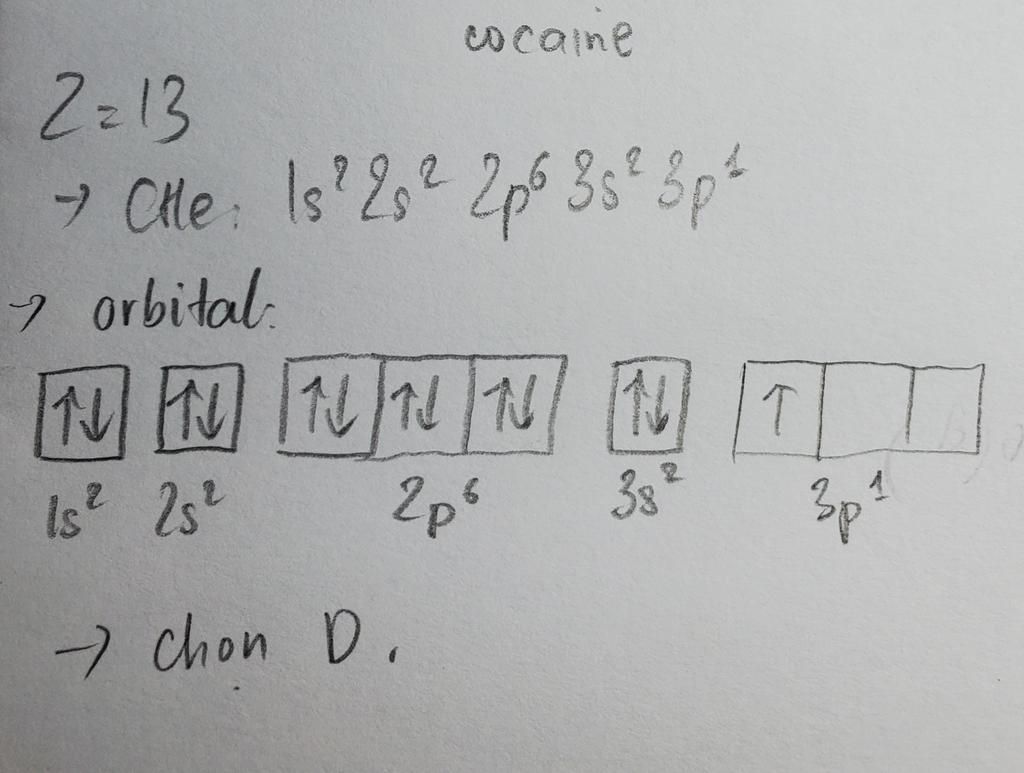 cocaine
Z=13
→ CHe: 1s² 2s² 2p⁶ 3s² 3p¹
→ orbital:
↑↓ ↑↓ ↑↓ ↑↓ ↑↓ ↑↓ ↑
1s² 2s² 2p⁶ 3s² 3p¹
→ chọn D.